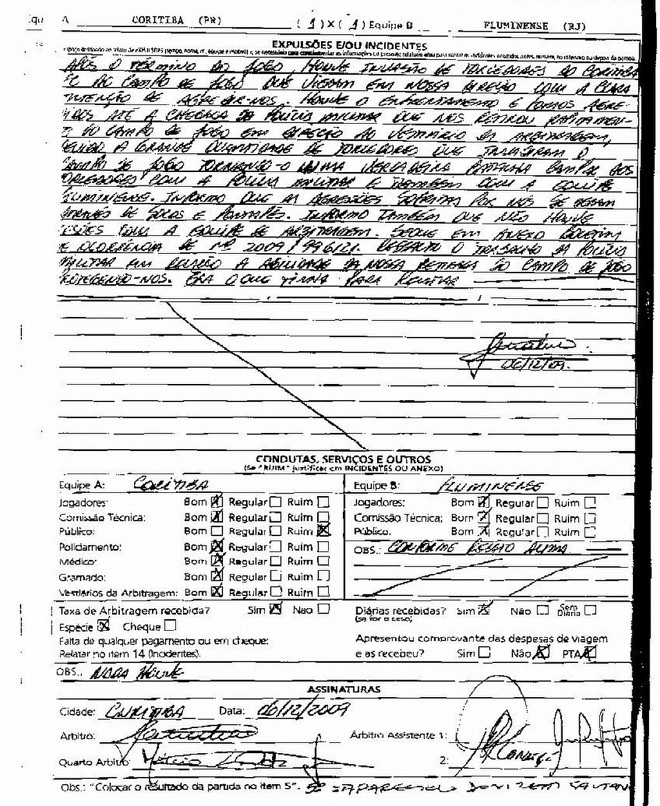 A CORITIBA (PR) (1) X (1) Equipe B FLUMINENSE (RJ)
EXPULSÕES E/OU INCIDENTES
APÓS O TÉRMINO DO JOGO, HOUVE INVASÃO DE TORCEDORES DO CORITIBA
AO CAMPO DE JOGO QUE VIERAM EM NOSSA DIREÇÃO COM A CLARA
INTENÇÃO DE AGREDIR-NOS. HOUVE O ENFRENTAMENTO E FOMOS AGRE-
DIDOS ATÉ A CHEGADA DA POLÍCIA MILITAR QUE NOS RETIROU RAPIDAMEN-
DO CAMPO DE JOGO EM DIREÇÃO AO VESTIÁRIO DA ARBITRAGEM,
DEVIDO A GRANDE QUANTIDADE DE TORCEDORES QUE INVADIRAM O
CAMPO DE JOGO TORNANDO-O NUMA VERDADEIRA BATALHA CAMPAL DOS
TORCEDORES COM A POLÍCIA MILITAR E TAMBÉM COM A EQUIPE
FLUMINENSE. INFORMO QUE AS AGRESSÕES SOFRIDAS POR NÓS SE DERAM
ATRAVÉS DE SOCOS E PONTAPÉS. INFORMO TAMBÉM QUE NÃO HOUVE
LESÕES COM A EQUIPE DE ARBITRAGEM. SEGUE EM ANEXO BOLETIM
DE OCORRÊNCIA DE Nº 2009/996121. RESSALTO O TRABALHO DA POLÍCIA
MILITAR EM RELAÇÃO A AGILIDADE DA NOSSA RETIRADA DO CAMPO DE JOGO
PROTEGENDO-NOS. ERA O QUE TINHA PARA RELATAR
06/12/09.
CONDUTAS, SERVIÇOS E OUTROS
(Se "RUIM" justificar em INCIDENTES OU ANEXO)
Equipe A: CORITIBA Equipe B: FLUMINENSE
Jogadores: Bom X Regular Ruim Jogadores: Bom X Regular Ruim
Comissão Técnica: Bom X Regular Ruim Comissão Técnica: Bom X Regular Ruim
Público: Bom Regular Ruim X Público: Bom X Regular Ruim
Policiamento: Bom X Regular Ruim OBS.: CONFORME RELATO ACIMA
Médico: Bom X Regular Ruim
Gramado: Bom X Regular Ruim
Vestiários da Arbitragem: Bom X Regular Ruim
Taxa de Arbitragem recebida? Sim X Não Diárias recebidas? Sim X Não Sem Diária
(se for o caso)
Espécie X Cheque
Falta de qualquer pagamento ou em cheque: Apresentou comprovante das despesas de viagem
Relatar no item 14 (Incidentes). e as recebeu? Sim Não X PTA X
OBS.: NADA HOUVE
ASSINATURAS
Cidade: CURITIBA Data: 06/12/2009
Árbitro: Árbitro Assistente 1:
Quarto Árbitro: 2:
Obs.: "Colocar o resultado da partida no item 5".